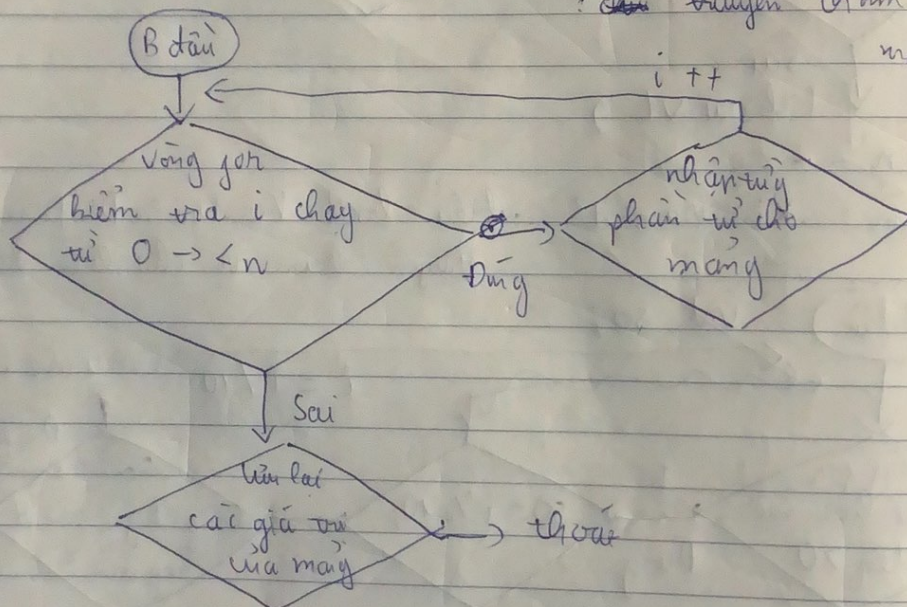 truyền
B đầu
i ++
vòng for
kiểm tra i chạy
từ 0 -> < n
Đúng
nhập từng
phần tử cho
mảng
Sai
lưu lại
các giá trị
của mảng
thoát